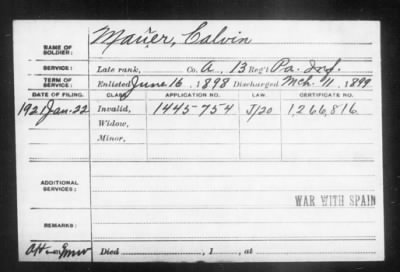 NAME OF SOLDIER: Mauer, Calvin
SERVICE: Late rank, Co. A, 13 Reg't Pa. Inf.
TERM OF SERVICE: Enlisted June 16, 1898 Discharged Mch. 11, 1899
DATE OF FILING. CLASS. APPLICATION NO. LAW. CERTIFICATE NO.
1921 Jan. 22 Invalid, 1445-754 J/20 1,266,816
Widow,
Minor,
ADDITIONAL SERVICES:
WAR WITH SPAIN
REMARKS:
Died , 1 , at